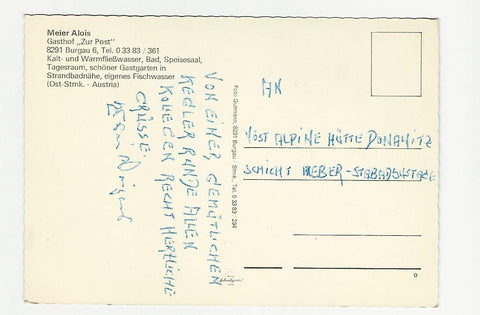 Meier Alois
Gasthof „Zur Post"
8291 Burgau 6, Tel. 0 33 83 / 361
Kalt- und Warmfließwasser, Bad, Speisesaal,
Tagesraum, schöner Gastgarten in
Strandbadnähe, eigenes Fischwasser
(Ost-Stmk. - Austria)
VON EINER, GEMÜTLICHEN
KEGLER RUNDE ALLEN
KOLEGEN RECHT HERZLICHE
GRÜSSE.
Foto Gutmann, 8291 Burgau Stmk., Tel. 0 33 83 - 294
AN
VÖST ALPINE HÜTTE DONAWITZ
SCHICHT WEBER -